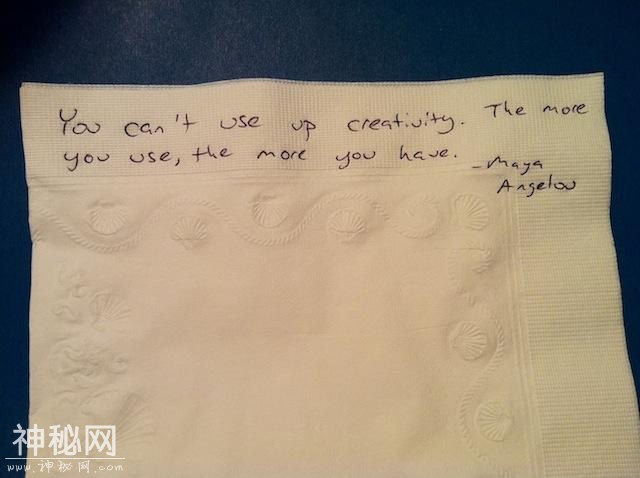 You can't use up creativity. The more
you use, the more you have. -Maya
Angelou
神秘网
www.神秘网.com